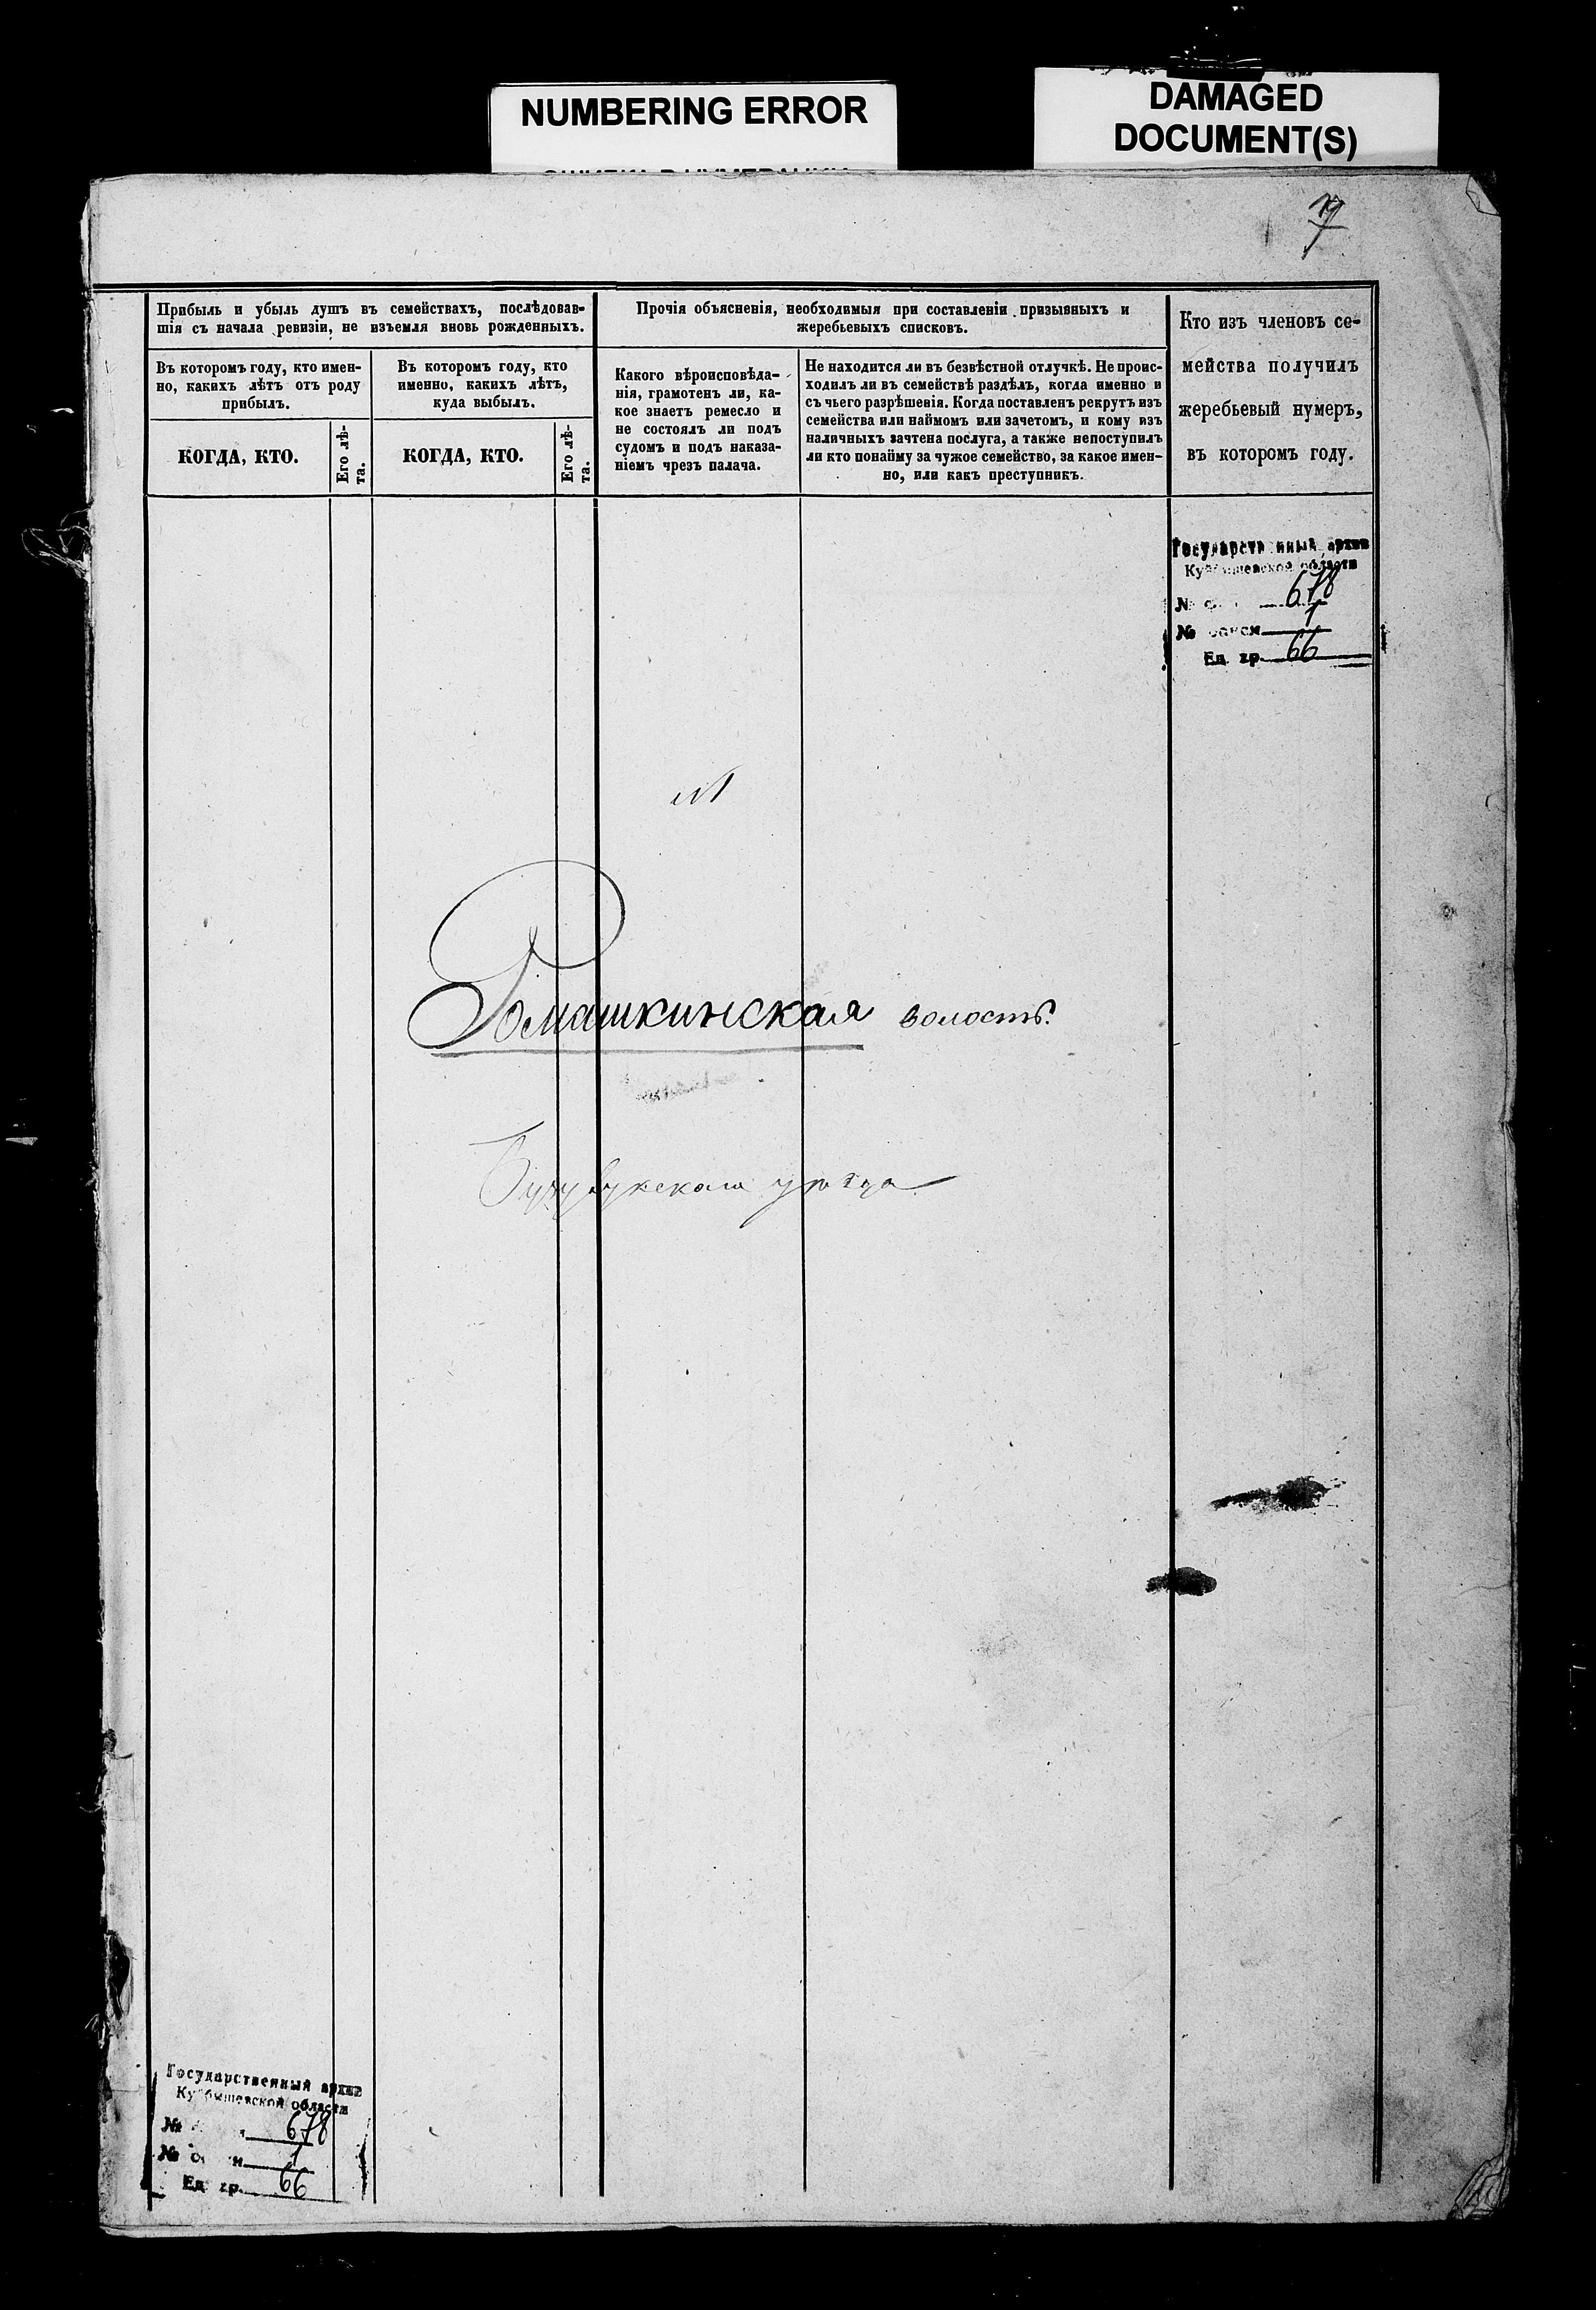 NUMBERING ERROR
DAMAGED
DOCUMENT(S)
Прибыль и убыль душъ въ семействахъ, послѣдовав-
шія съ начала ревизіи, не изъемля вновь рожденныхъ.
Въ которомъ году, кто имен-
но, какихъ лѣтъ отъ роду
прибылъ.
КОГДА, КТО.
Его лѣ-
та.
Въ которомъ году, кто
именно, какихъ лѣтъ,
куда выбылъ.
КОГДА, КТО.
Его лѣ-
та.
Прочія объясненія, необходимыя при составленіи призывныхъ и
жеребьевыхъ списковъ.
Какого вѣроисповѣда-
нія, грамотенъ ли, ка-
кое знаетъ ремесло и
не состоялъ ли подъ
судомъ и подъ наказа-
ніемъ чрезъ палача.
Не находится ли въ безвѣстной отлучкѣ. Не проис-
ходилъ ли въ семействѣ раздѣлъ, когда именно и
съ чьего разрѣшенія. Когда поставленъ рекрутъ изъ
семейства или наймомъ или зачетомъ, и кому изъ
наличныхъ зачтена послуга, а также непоступилъ
ли кто понайму за чужое семейство, за какое имен-
но, или какъ преступникъ.
Кто изъ членовъ се-
мейства получилъ
жеребьевый нумеръ,
въ которомъ году.
Государственный архив
Куйбышевской области
№ 678
№ 1
Ед. хр. 66
Ромашкинская волость.
Бузулукскаго уѣзда
Государственный архив
Куйбышевской области
№ 678
№ 1
Ед. хр. 66